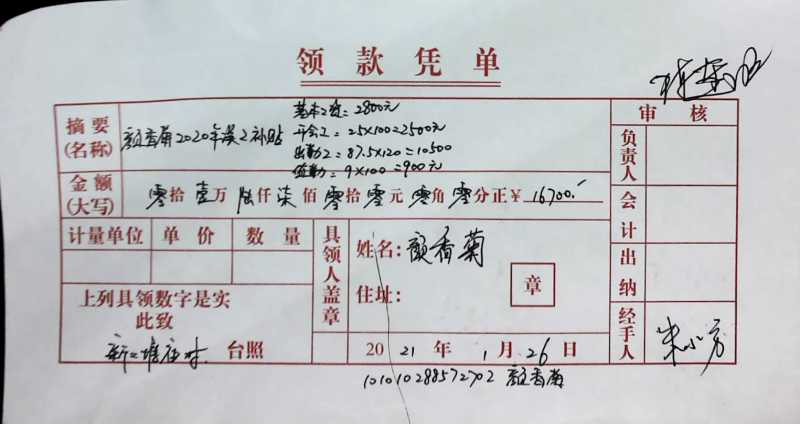 领款凭单
摘要
(名称)
颜香菊2020年误工补贴
基本工资:2800元
开会工:25×100=2500元
出勤工:87.5×120=10500
值勤:9×100=900元
审核
金额
(大写)
零拾壹万陆仟柒佰零拾零元零角零分正¥16700.-
负责人
会计
出纳
经手人
朱小方
计量单位 单价 数量
具领人盖章
姓名:颜香菊
住址:
章
上列具领数字是实
此致
台照
2021年1月26日
101010288572702 颜香菊